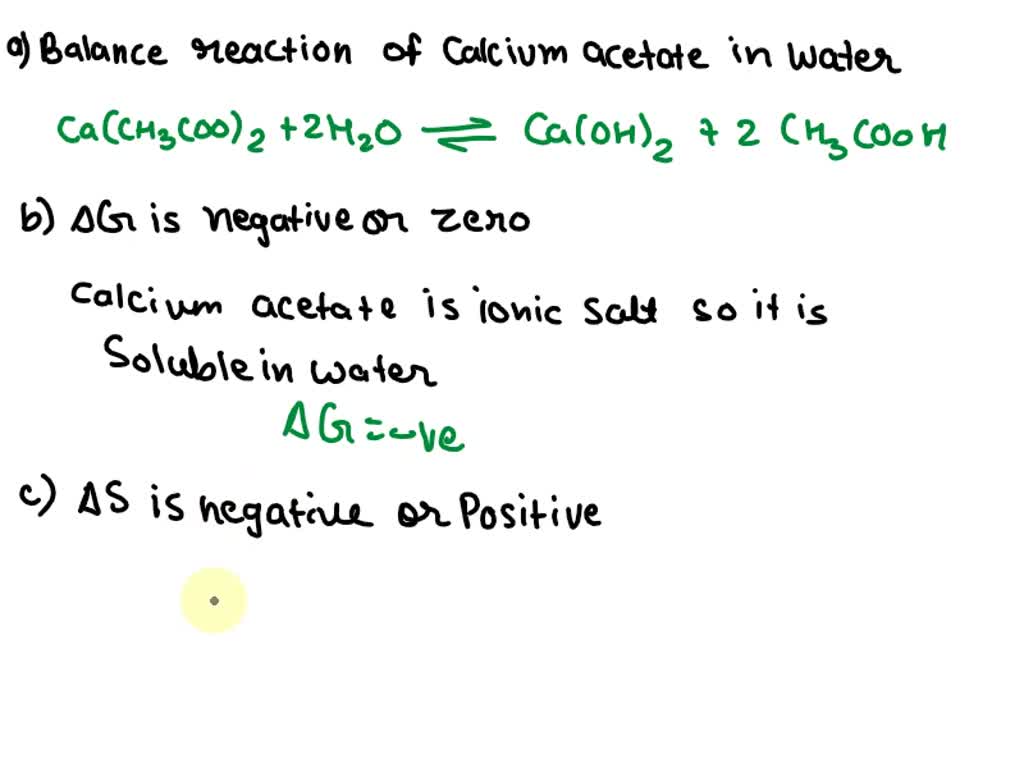 a) Balance reaction of Calcium acetate in water
Ca(CH₃COO)₂ + 2H₂O ⇌ Ca(OH)₂ + 2 CH₃COOH
b) ΔG is negative or zero
Calcium acetate is ionic salt so it is
Soluble in water
ΔG = -ve
c) ΔS is negative or Positive